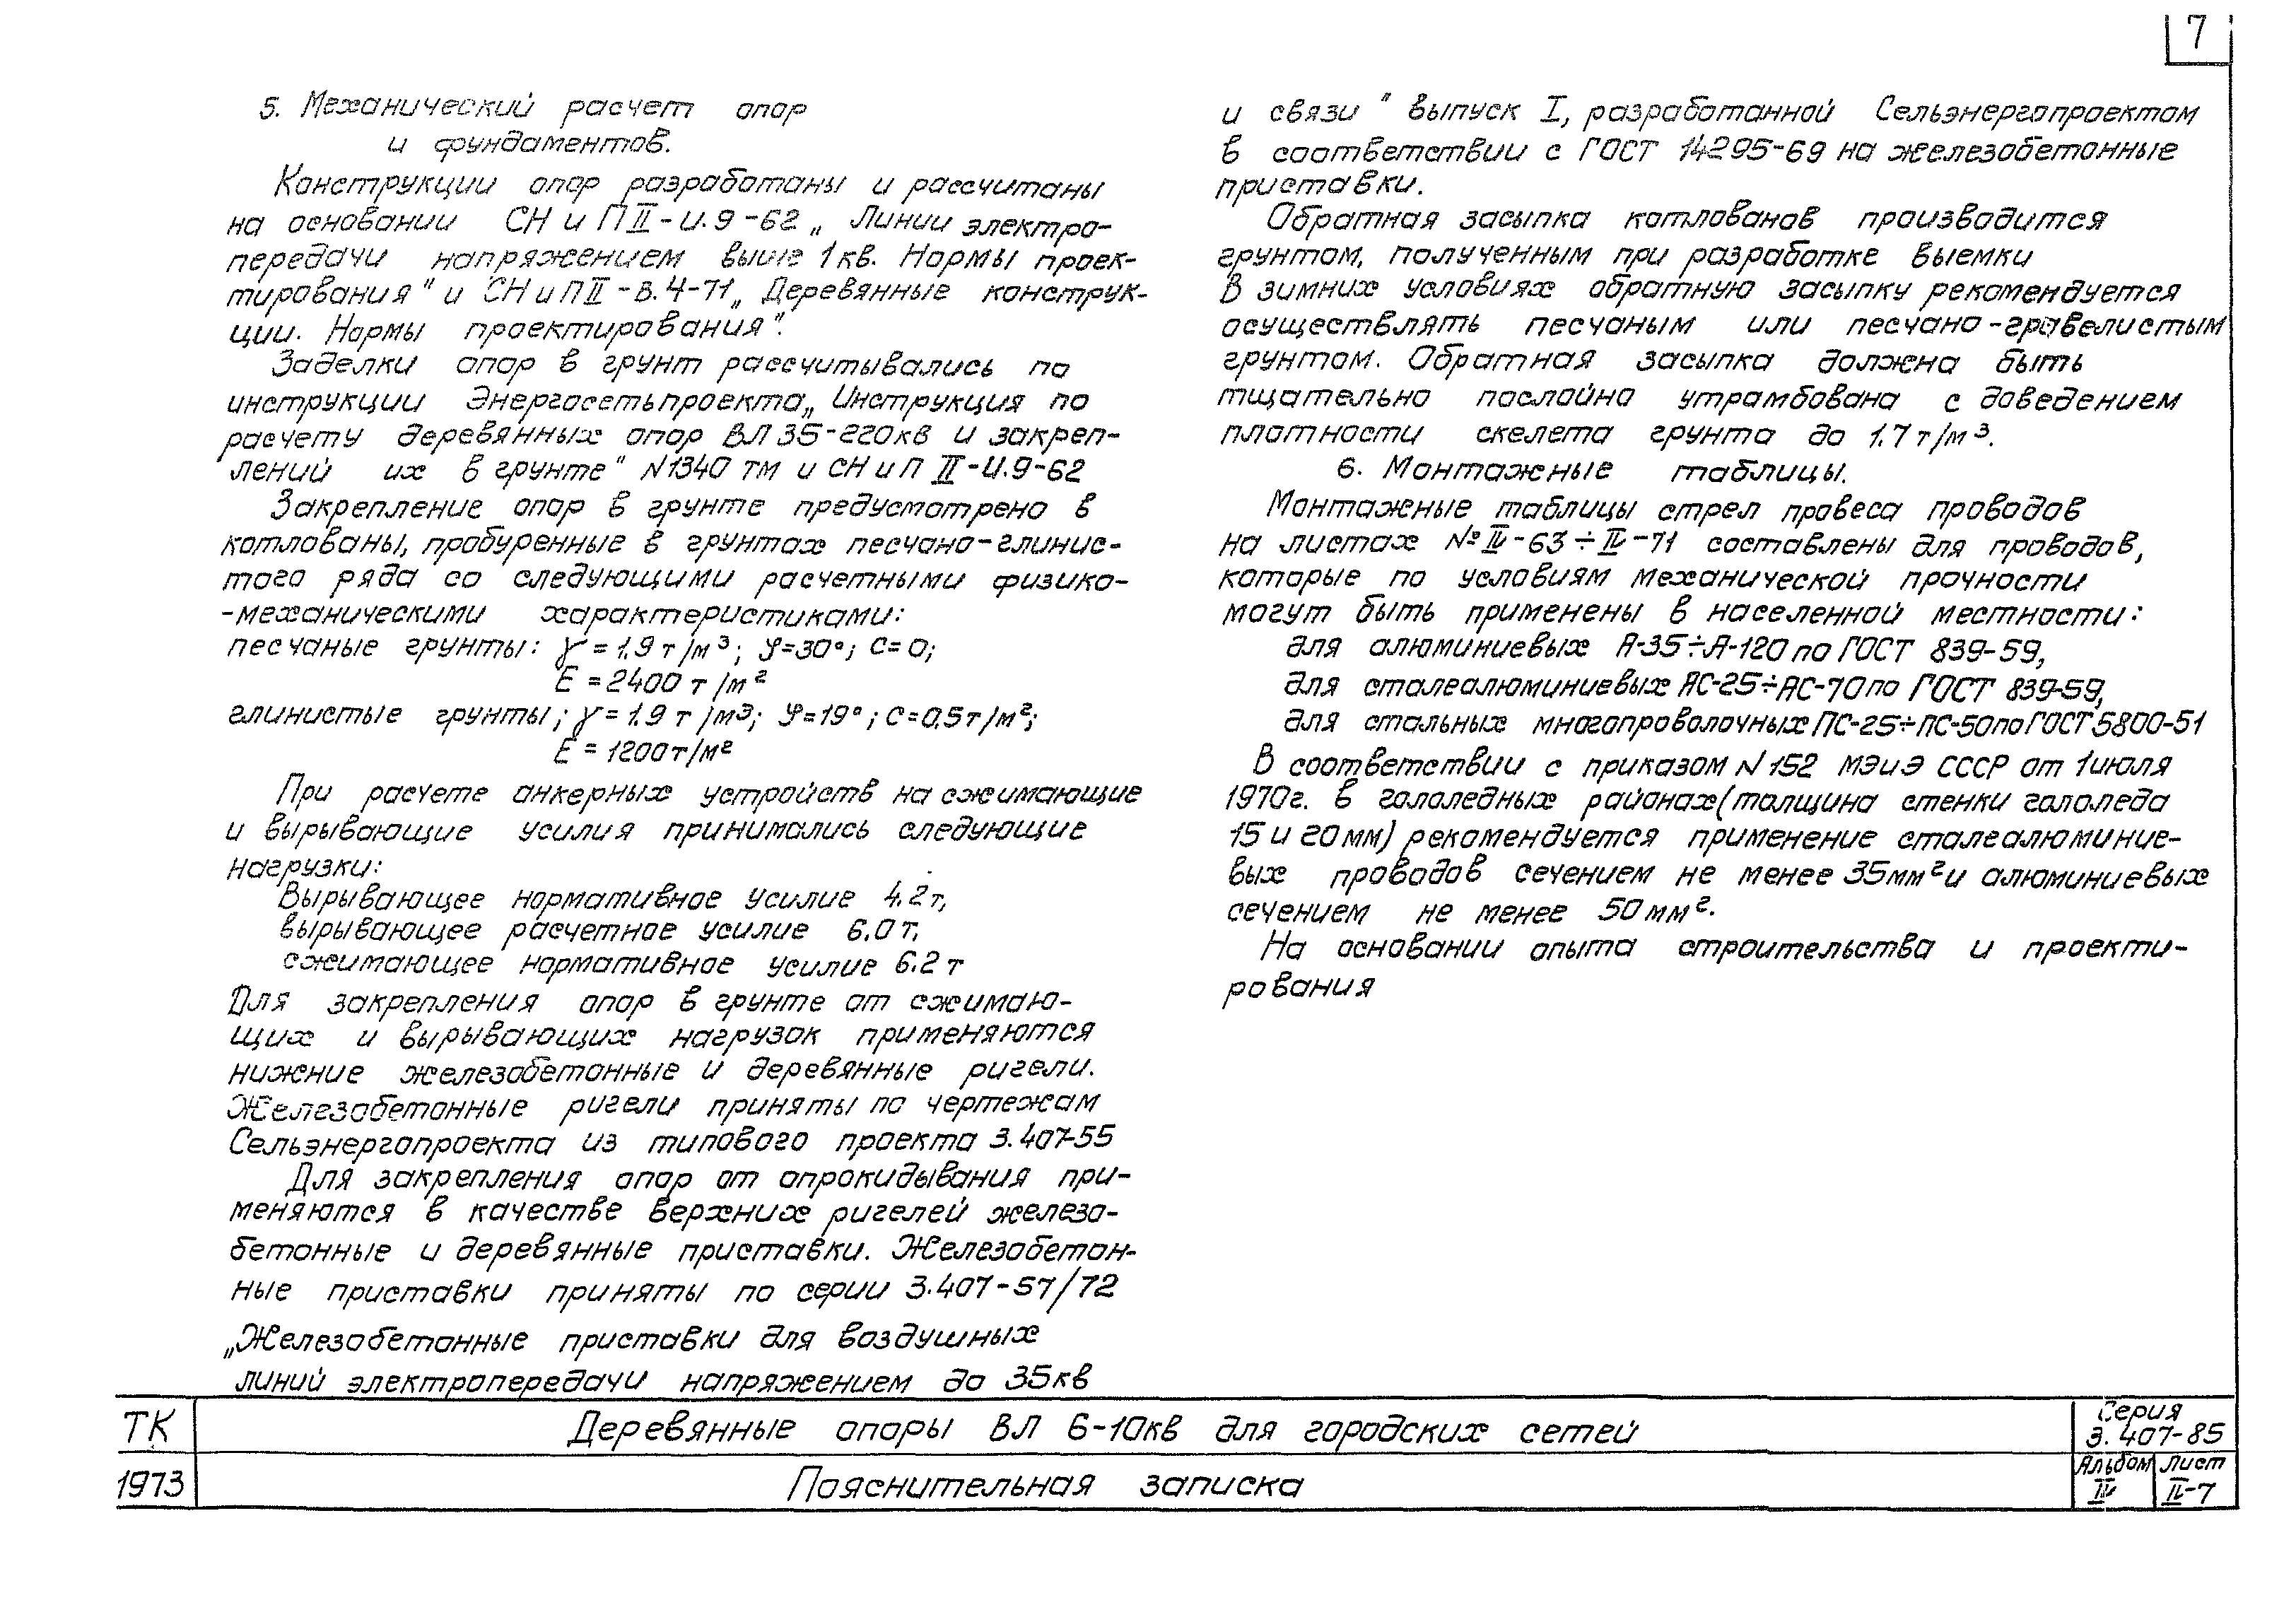 7
5. Механический расчет опор
и фундаментов.
Конструкции опор разработаны и рассчитаны
на основании СН и П II-И.9-62 „Линии электро-
передачи напряжением выше 1кв. Нормы проек-
тирования" и СН и П II-В.4-71„ Деревянные конструк-
ции. Нормы проектирования".
Заделки опор в грунт рассчитывались по
инструкции Энергосетьпроекта„ Инструкция по
расчету деревянных опор ВЛ 35-220кв и закреп-
лений их в грунте" N1340 тм и СН и П II-И.9-62
Закрепление опор в грунте предусмотрено в
котлованы, пробуренные в грунтах песчано-глинис-
того ряда со следующими расчетными физико-
-механическими характеристиками:
песчаные грунты: γ = 1.9 т/м³; φ=30°; С=0;
Е = 2400 т/м²
глинистые грунты; γ = 1.9 т/м³; φ=19°; С=0.5т/м²;
Е = 1200т/м²
При расчете анкерных устройств на сжимающие
и вырывающие усилия принимались следующие
нагрузки:
Вырывающее нормативное усилие 4.2т,
вырывающее расчетное усилие 6.0т,
сжимающее нормативное усилие 6.2т
Для закрепления опор в грунте от сжимаю-
щих и вырывающих нагрузок применяются
нижние железобетонные и деревянные ригели.
Железобетонные ригели приняты по чертежам
Сельэнергопроекта из типового проекта 3.407-55
Для закрепления опор от опрокидывания при-
меняются в качестве верхних ригелей железо-
бетонные и деревянные приставки. Железобетон-
ные приставки приняты по серии 3.407-57/72
„Железобетонные приставки для воздушных
линий электропередачи напряжением до 35кв
и связи" выпуск I, разработанной Сельэнергопроектом
в соответствии с ГОСТ 14295-69 на железобетонные
приставки.
Обратная засыпка котлованов производится
грунтом, полученным при разработке выемки
В зимних условиях обратную засыпку рекомендуется
осуществлять песчаным или песчано-гравелистым
грунтом. Обратная засыпка должна быть
тщательно послойно утрамбована с доведением
плотности скелета грунта до 1.7т/м³.
6. Монтажные таблицы.
Монтажные таблицы стрел провеса проводов
на листах № IV-63÷IV-71 составлены для проводов,
которые по условиям механической прочности
могут быть применены в населенной местности:
для алюминиевых А-35÷А-120 по ГОСТ 839-59,
для сталеалюминиевых АС-25÷АС-70 по ГОСТ 839-59,
для стальных многопроволочных ПС-25÷ПС-50 по ГОСТ 5800-51
В соответствии с приказом N 152 МЭиЭ СССР от 1июля
1970г. в гололедных районах (толщина стенки гололеда
15 и 20мм) рекомендуется применение сталеалюминие-
вых проводов сечением не менее 35мм² и алюминиевых
сечением не менее 50мм².
На основании опыта строительства и проекти-
рования
ТК
1973
Деревянные опоры ВЛ 6-10кв для городских сетей
Пояснительная записка
Серия
3.407-85
Альбом Лист
IV IV-7